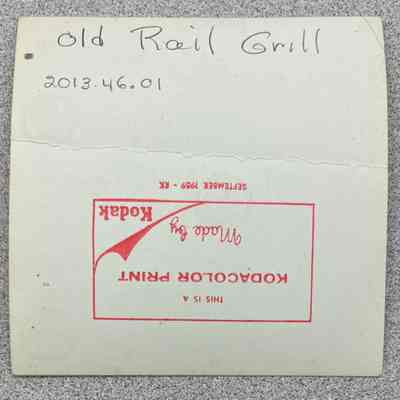 Old Rail Grill
2013.46.01
THIS IS A
KODACOLOR PRINT
Made by
Kodak
SEPTEMBER 1959 - RK